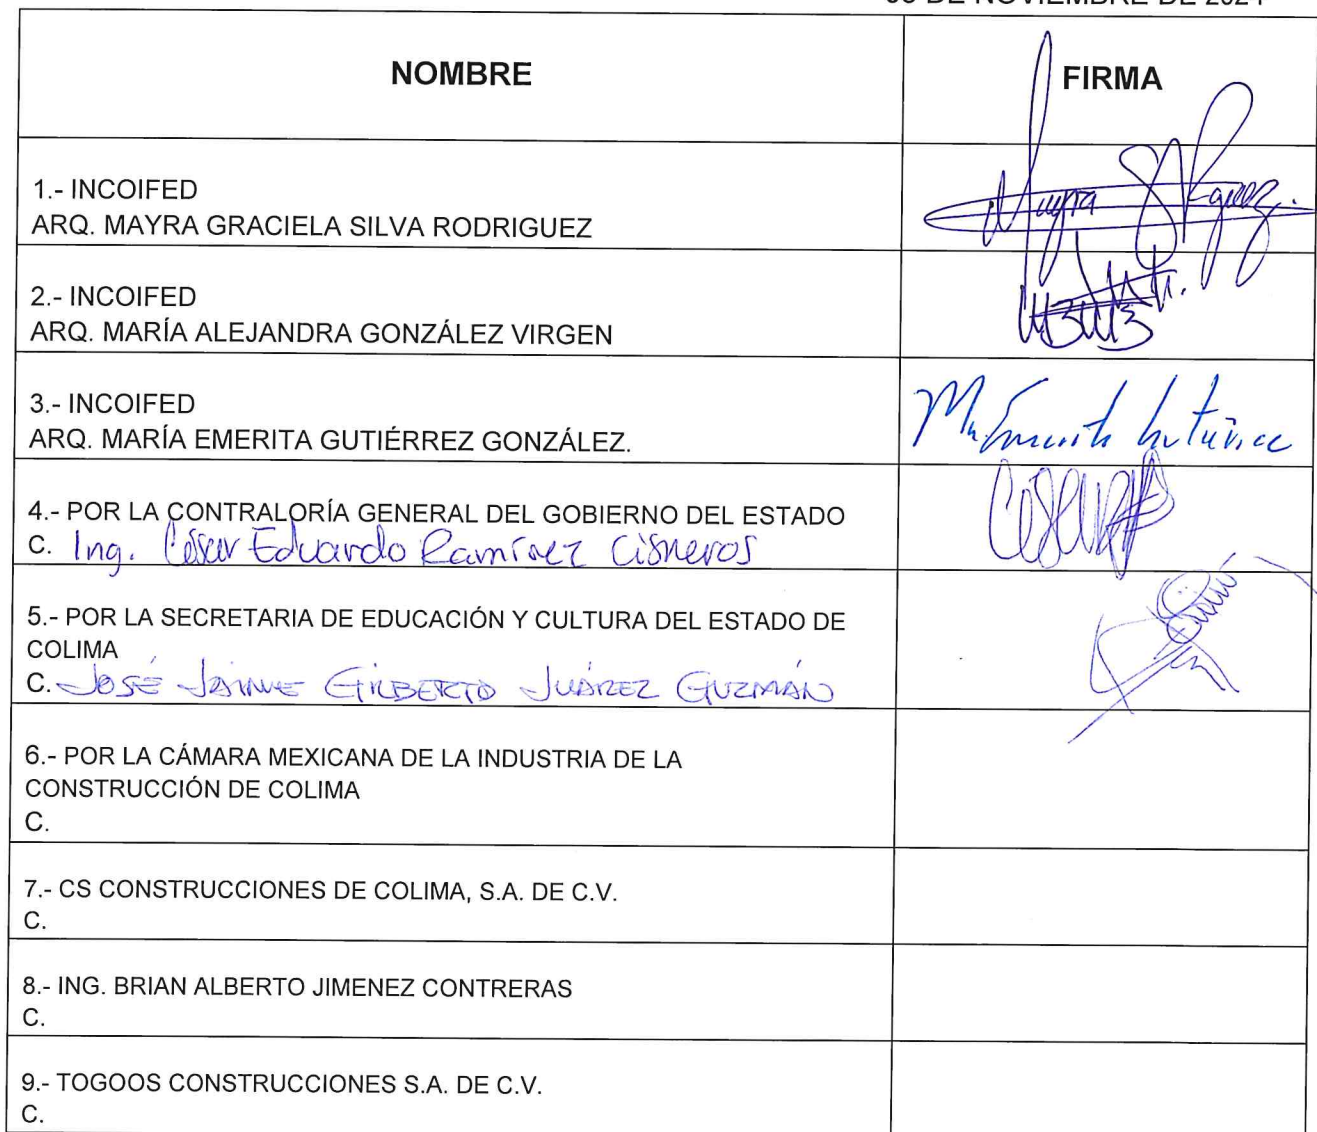 DE NOVIEMBRE DE 2024
NOMBRE
FIRMA
1.- INCOIFED
ARQ. MAYRA GRACIELA SILVA RODRIGUEZ
2.- INCOIFED
ARQ. MARÍA ALEJANDRA GONZÁLEZ VIRGEN
3.- INCOIFED
ARQ. MARÍA EMERITA GUTIÉRREZ GONZÁLEZ.
4.- POR LA CONTRALORÍA GENERAL DEL GOBIERNO DEL ESTADO
C. Ing. César Eduardo Ramírez Cisneros
5.- POR LA SECRETARIA DE EDUCACIÓN Y CULTURA DEL ESTADO DE
COLIMA
C. JOSÉ JAIME GILBERTO JUÁREZ GUZMÁN
6.- POR LA CÁMARA MEXICANA DE LA INDUSTRIA DE LA
CONSTRUCCIÓN DE COLIMA
C.
7.- CS CONSTRUCCIONES DE COLIMA, S.A. DE C.V.
C.
8.- ING. BRIAN ALBERTO JIMENEZ CONTRERAS
C.
9.- TOGOOS CONSTRUCCIONES S.A. DE C.V.
C.